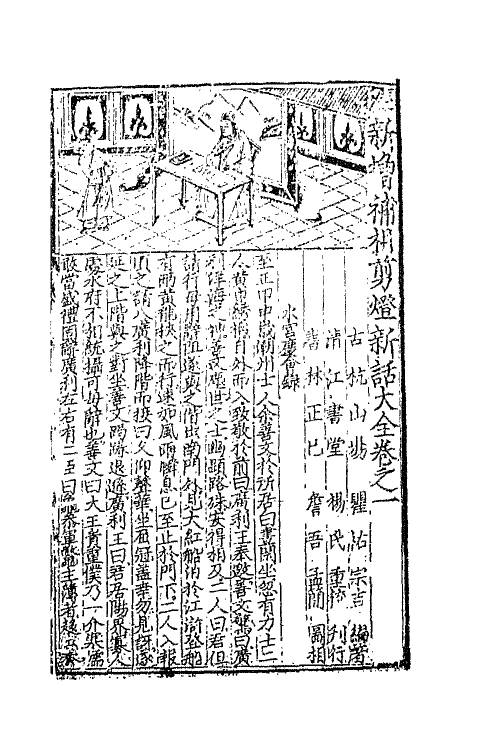 新增補相剪燈新話大全卷之一
古杭山陽 瞿佑宗吉 編著
清江書堂 楊氏重校 刊行
書林正已 詹吾孟簡 圖相
水宮慶會錄
至正甲申歲潮州士人余善文於所居白晝閑坐忽有力士二
人黃巾綉襖自外而入致敬於前曰廣利王奉邀善文驚曰廣
利洋海之神善文塵世之士幽顯路殊安得相及二人曰君但
請行毋用辭阻遂與之偕出南門外見大紅船泊於江滸登船
有兩黃龍挾之而行速如風雨瞬息已至止於門下二人入報
頃之請入廣利降階而接曰久仰聲華坐屈冠蓋幸勿見訝遂
延之上階與之對坐善文跼蹐退遜廣利王曰君居陽界寡人
處水府不相統攝可毋辭也善文曰大王貴重僕乃一介寒儒
敢當盛禮固辭廣利左右有二臣曰黿參軍鱉主簿者趨出奏